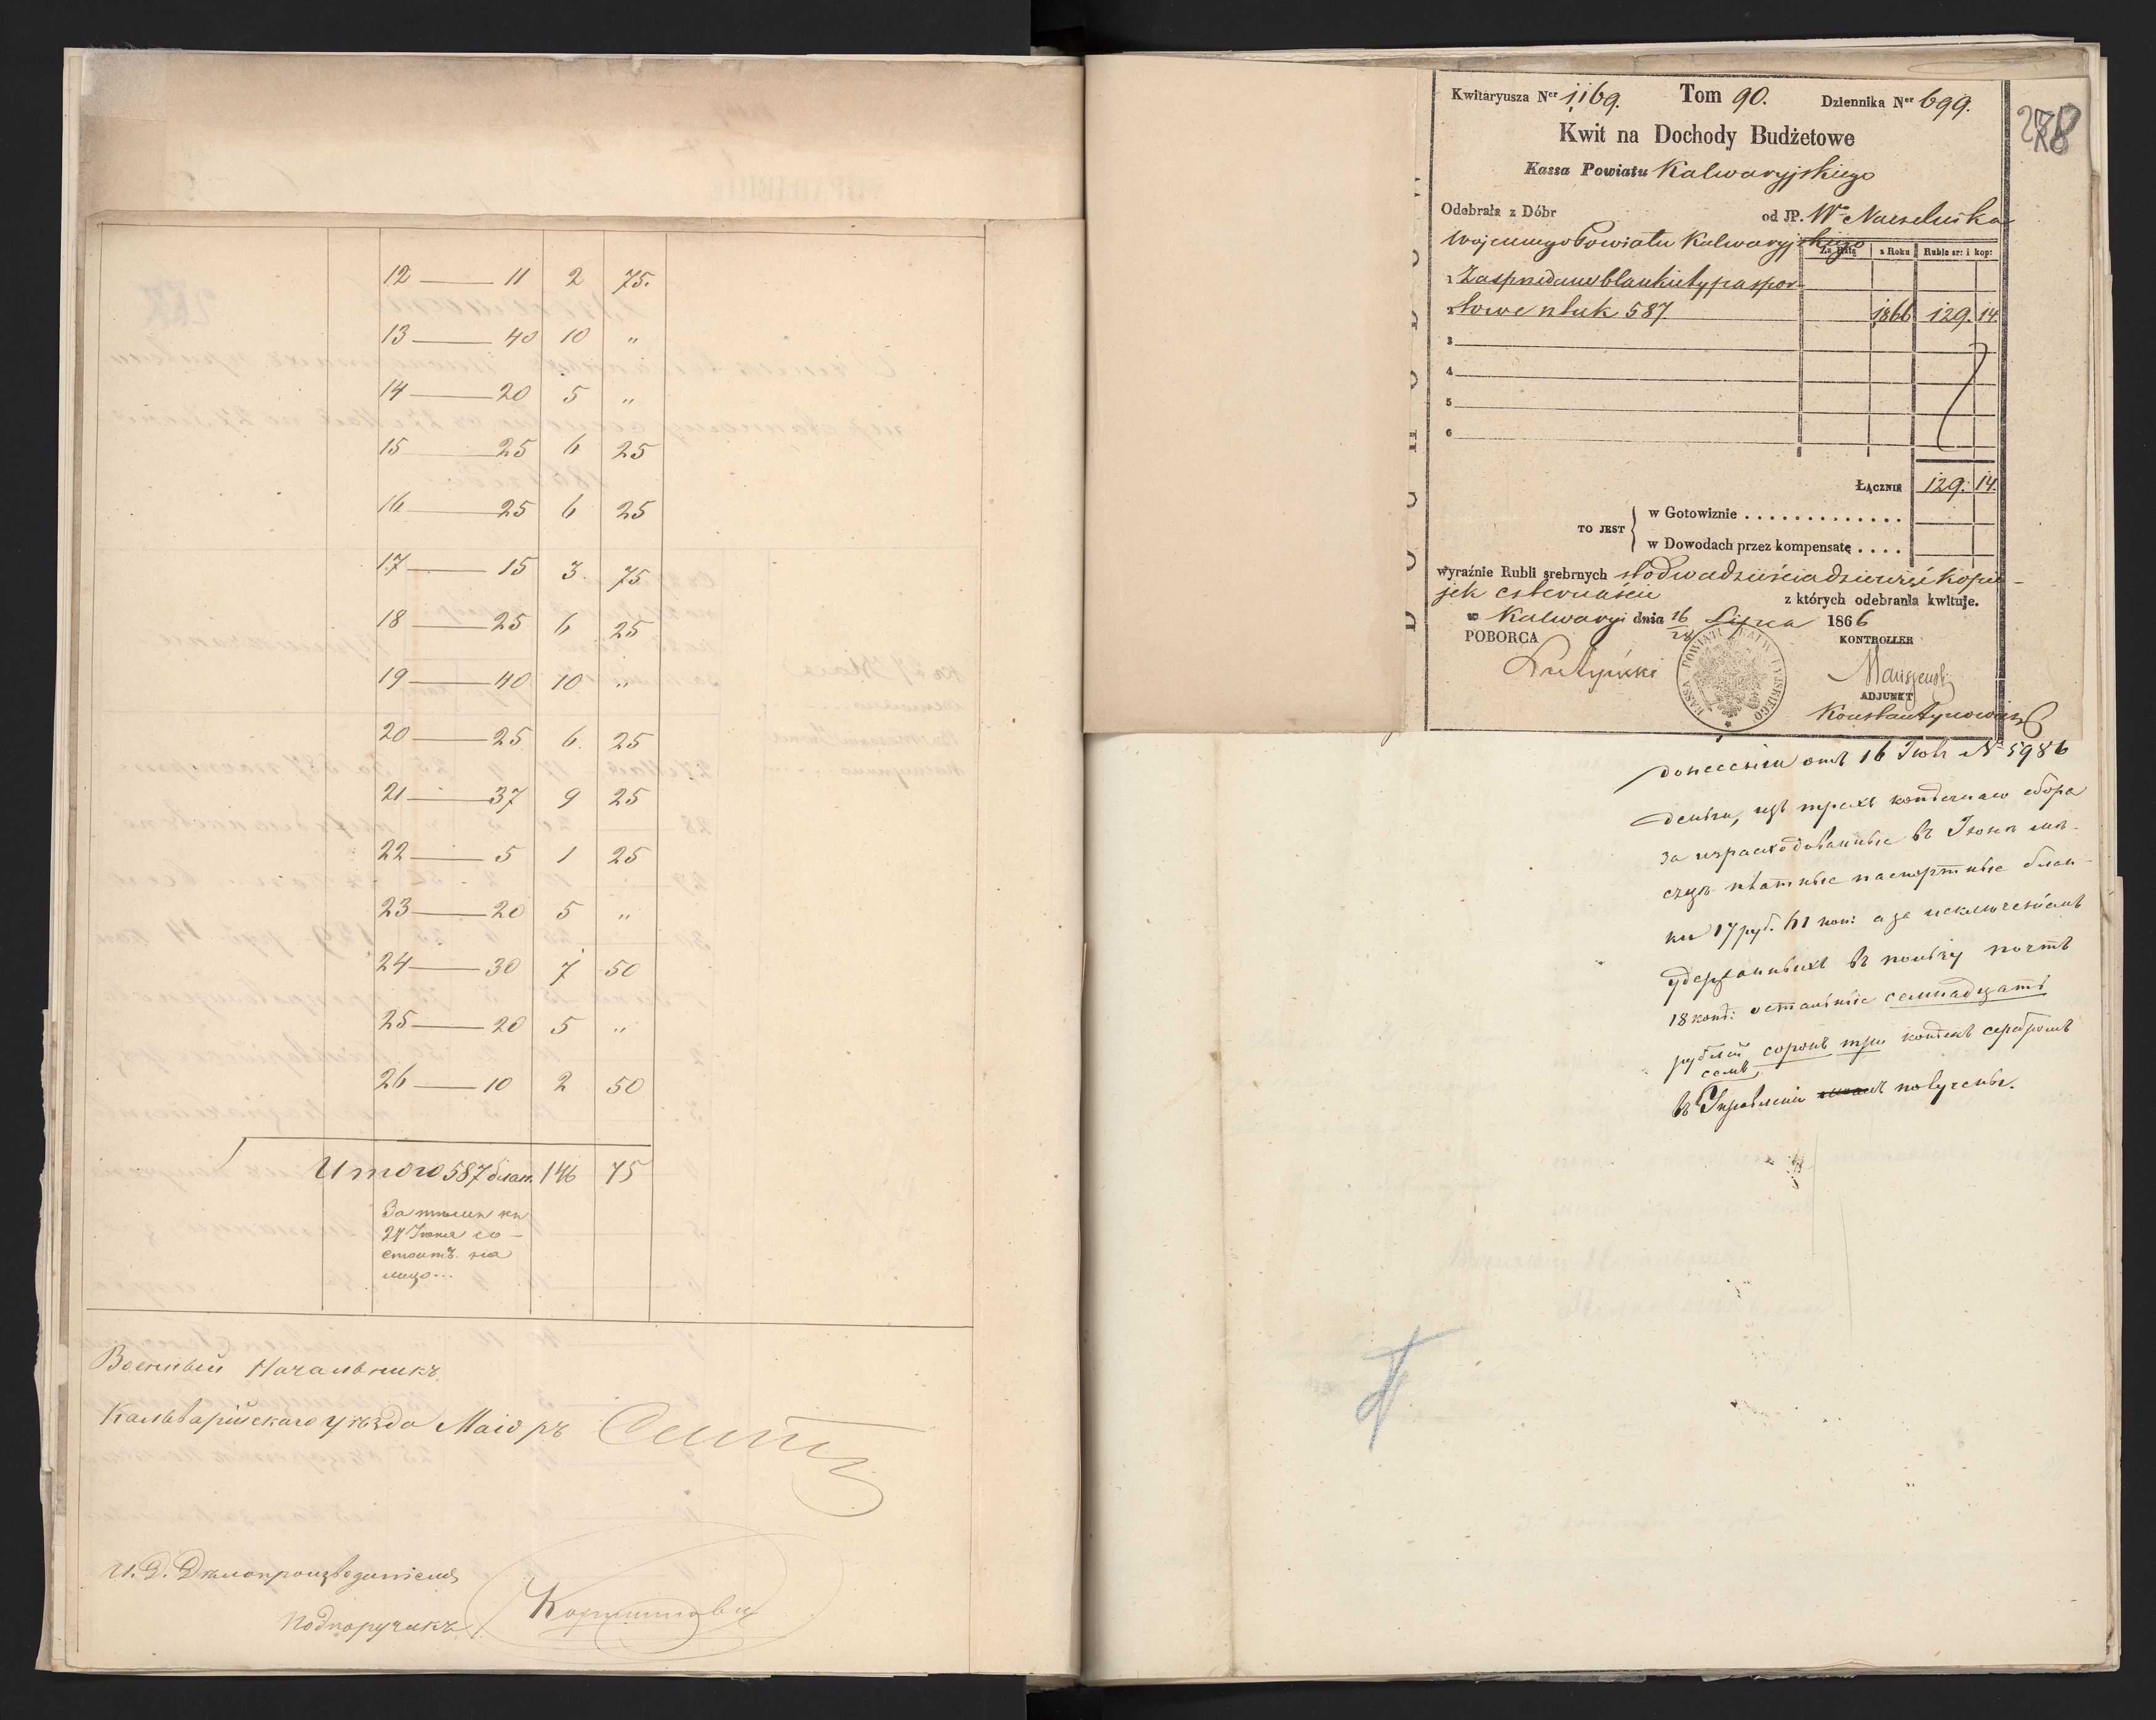 12 — 11 2 75.
13 — 40 10 "
14 — 20 5 "
15 — 25 6 25
16 — 25 6 25
17 — 15 3. 75
18 — 25 6 25
19 — 40 10 "
20 — 25 6. 25
21 — 37 9 25
22 — 5 1 25
23 — 20 5 "
24 — 30 7 50
25 — 20 5 "
26 — 10 2 50
Итого 587 блан. 146 75
За тѣмъ къ
27 Іюня со-
стоитъ на
лицо...
Военный Начальникъ
Кальварійскаго уѣзда Маіоръ
И. Д. Дѣлопроизводителя
Подпоручикъ
Kwitaryusza Ner 1169. Tom 90. Dziennika Ner 699.
278
Kwit na Dochody Budżetowe
Kassa Powiatu Kalwaryjskiego
Odebrała z Dóbr od JP. Wo Naczelnika
Wojennego Powiatu Kalwaryjskiego
Za Ratę z Roku Ruble sr: i kop:
1 Za sprzedane blankiety paspor-
2 towe sztuk 587 1866 129. 14.
3
4
5
6
ŁĄCZNIE 129. 14.
TO JEST
w Gotowiznie . . . . . . . . . . . . .
w Dowodach przez kompensatę . . . .
wyraźnie Rubli srebrnych sto dwadzieścia dziewięć kopie-
jek czternaście z których odebrania kwituje.
w Kalwaryi dnia 16/28 Lipca 1866
POBORCA KONTROLLER
KASSA POWIATU KALWARYJSKIEGO
ADJUNKT
Konstantynowicz
донесенiи отъ 16 Іюля № 5986
деньги, изъ трехъ копѣечнаго сбора
за израсходованные въ Іюнѣ мѣ-
сяцѣ платные паспортные блан-
ки 17 руб. 61 коп: а за исключеніемъ
удержанныхъ въ пользу почтъ
18 коп: остальные семнадцать
рублей сорокъ три копѣекъ серебромъ
въ Управленіи получены.